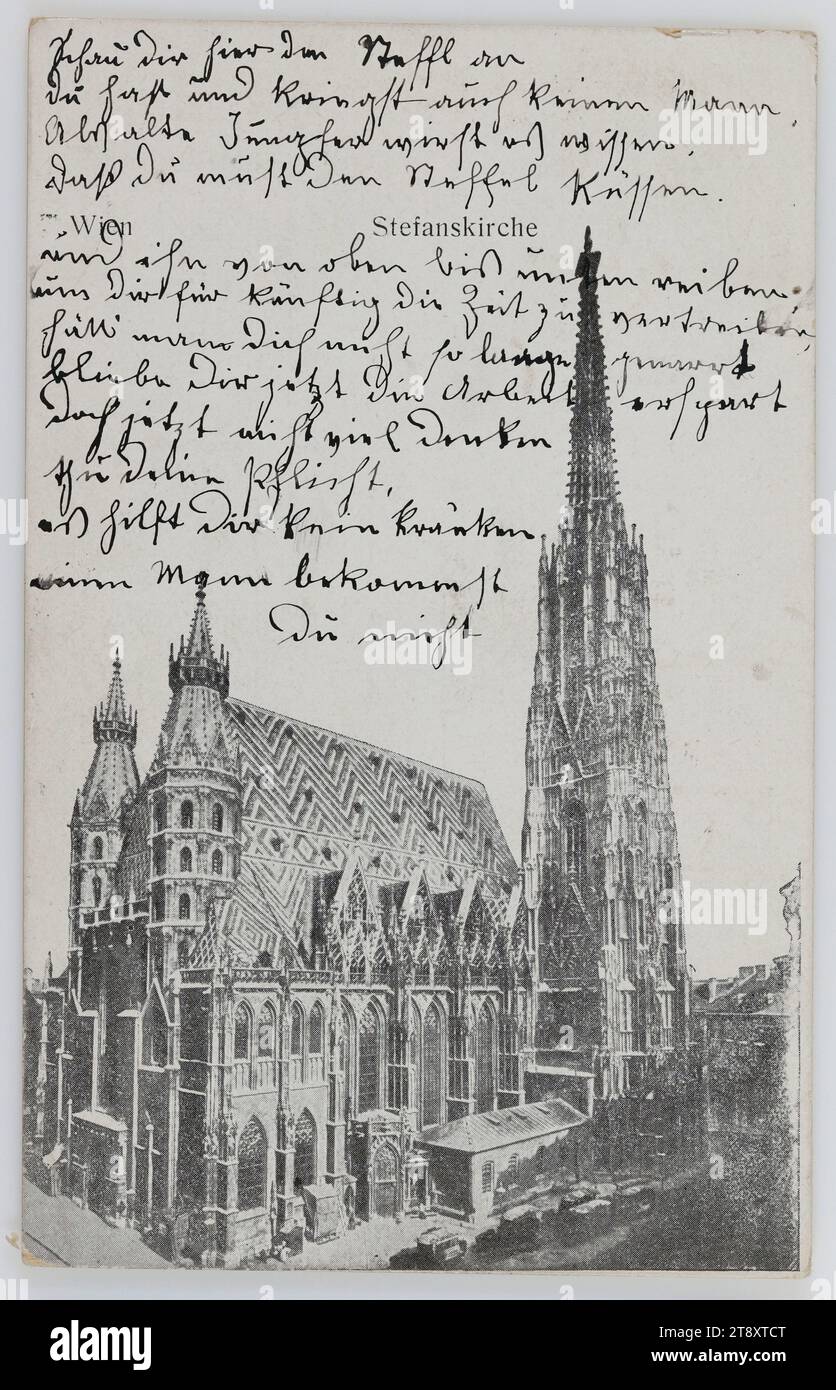 Schau dir hier den Steffl an
du hast und kriegst auch keinen Mann,
Als alte Jungfer wirst es wissen,
daß du must den Steffel Küssen.
Wien Stefanskirche
und ihn von oben bis unten reiben
um dir für künftig die Zeit zu vertreiben,
hätt man dich nicht so lange genarrt
bliebe dir jetzt die Arbeit erspart
doch jetzt nicht viel denken
thu deine Pflicht,
es hilft dir kein kränken
einen Mann bekommst
du nicht
alamy
Image ID: 2T8XTCT
www.alamy.com